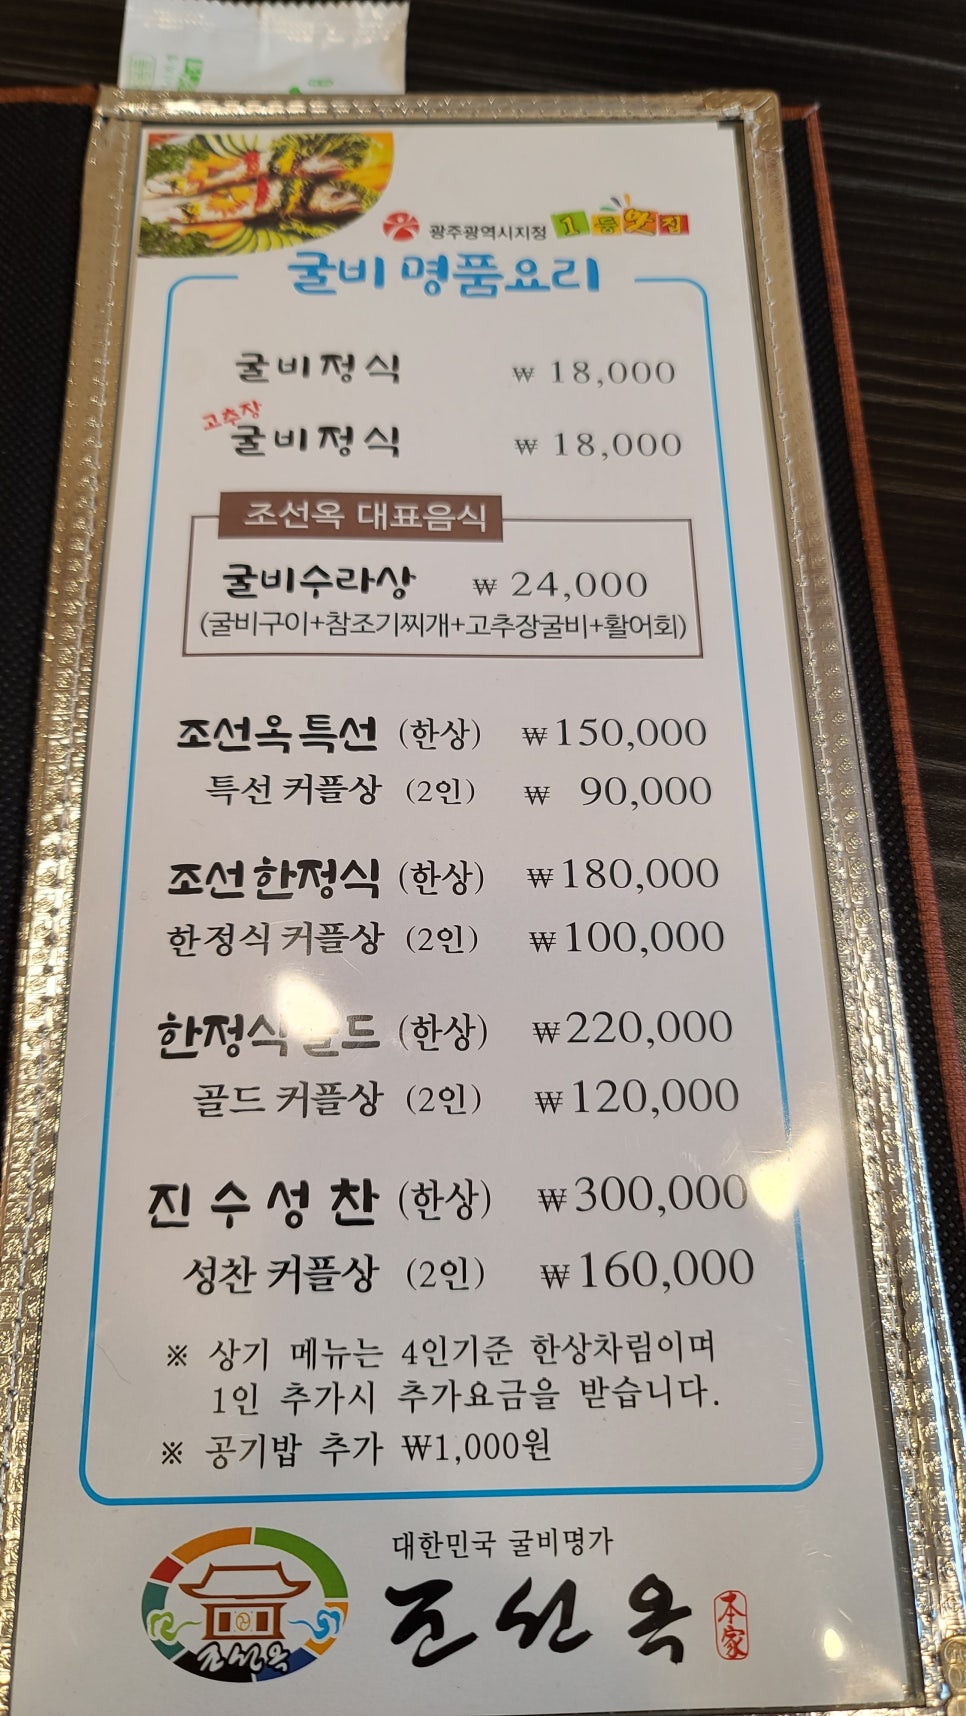 광주광역시지정 1등맛집
굴비 명품요리
굴비정식 ₩ 18,000
고추장
굴비정식 ₩ 18,000
조선옥 대표음식
굴비수라상 ₩ 24,000
(굴비구이+참조기찌개+고추장굴비+활어회)
조선옥특선 (한상) ₩150,000
특선 커플상 (2인) ₩ 90,000
조선한정식 (한상) ₩180,000
한정식 커플상 (2인) ₩100,000
한정식골드 (한상) ₩220,000
골드 커플상 (2인) ₩120,000
진수성찬 (한상) ₩300,000
성찬 커플상 (2인) ₩160,000
※ 상기 메뉴는 4인기준 한상차림이며
1인 추가시 추가요금을 받습니다.
※ 공기밥 추가 ₩1,000원
대한민국 굴비명가
조선옥 本家
조선옥